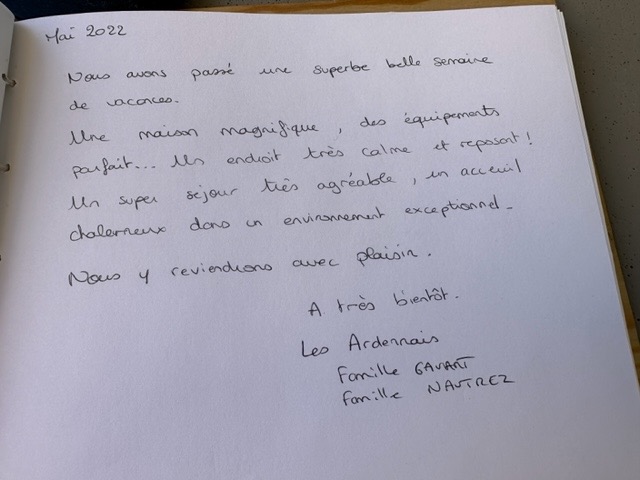 Mai 2022
Nous avons passé une superbe belle semaine
de vacances.
Une maison magnifique, des équipements
parfait... Un endroit très calme et reposant !
Un super séjour très agréable, un acceuil
chalerneux dans un environnement exceptionnel.
Nous y reviendrons avec plaisir.
A très bientôt.
Les Ardennais
Famille GAVART
Famille NAUTREZ